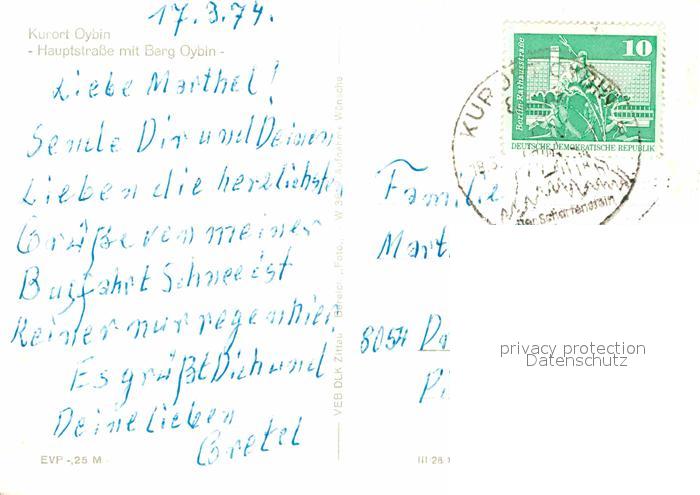 17.3.74.
Kurort Oybin
- Hauptstraße mit Berg Oybin -
Liebe Marthel!
Sende Dir und Deinen
Lieben die herzlichsten
Grüße von meiner
Busfahrt Schnee ist
Keiner nur regen hier.
Es grüßt Dich und
Deine Lieben
Gretel
EVP -,25 M
VEB DLK Zittau
10
Berlin-Rathausstraße
DEUTSCHE DEMOKRATISCHE REPUBLIK
KURORT OYBIN
Familie
Mart
8054 Dr
privacy protection
Datenschutz